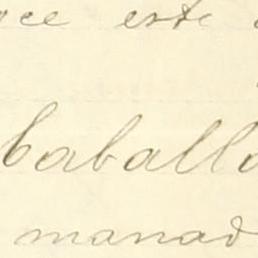 este
caballo
manad